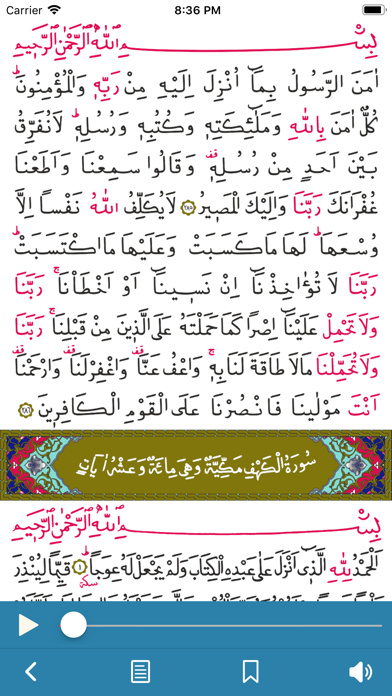 Carrier 8:36 PM
بِسْمِ اللّٰهِ الرَّحْمٰنِ الرَّحِيمِ
اٰمَنَ الرَّسُولُ بِمَٓا اُنْزِلَ اِلَيْهِ مِنْ رَبِّه۪ وَالْمُؤْمِنُونَۜ
كُلٌّ اٰمَنَ بِاللّٰهِ وَمَلٰٓئِكَتِه۪ وَكُتُبِه۪ وَرُسُلِه۪ۜ لَانُفَرِّقُ
بَيْنَ اَحَدٍ مِنْ رُسُلِه۪ۚ وَقَالُوا سَمِعْنَا وَاَطَعْنَا
غُفْرَانَكَ رَبَّنَا وَاِلَيْكَ الْمَص۪يرُ ﴿٢٨٥﴾ لَايُكَلِّفُ اللّٰهُ نَفْساً اِلَّا
وُسْعَهَاۜ لَهَا مَاكَسَبَتْ وَعَلَيْهَا مَااكْتَسَبَتْۜ
رَبَّنَا لَا تُؤَاخِذْنَٓا اِنْ نَس۪ينَٓا اَوْ اَخْطَأْنَاۚ رَبَّنَا
وَلَا تَحْمِلْ عَلَيْنَٓا اِصْراً كَمَا حَمَلْتَهُ عَلَى الَّذ۪ينَ مِنْ قَبْلِنَاۚ رَبَّنَا
وَلَا تُحَمِّلْنَا مَالَا طَاقَةَ لَنَابِه۪ۚ وَاعْفُ عَنَّا۠ وَاغْفِرْلَنَا۠ وَارْحَمْنَا۠
اَنْتَ مَوْلٰينَا فَانْصُرْنَا عَلَى الْقَوْمِ الْكَافِر۪ينَ ﴿٢٨٦﴾
سُورَةُ الْكَهْفِ مَكِّيَّةٌ وَهِيَ مِائَةٌ وَعَشْرُ اٰيَاتٍ
بِسْمِ اللّٰهِ الرَّحْمٰنِ الرَّحِيمِ
اَلْحَمْدُ لِلّٰهِ الَّذ۪ٓي اَنْزَلَ عَلٰى عَبْدِهِ الْكِتَابَ وَلَمْ يَجْعَلْ لَهُ عِوَجاًۜ ﴿١﴾ سكته قَيِّماً لِيُنْذِرَ